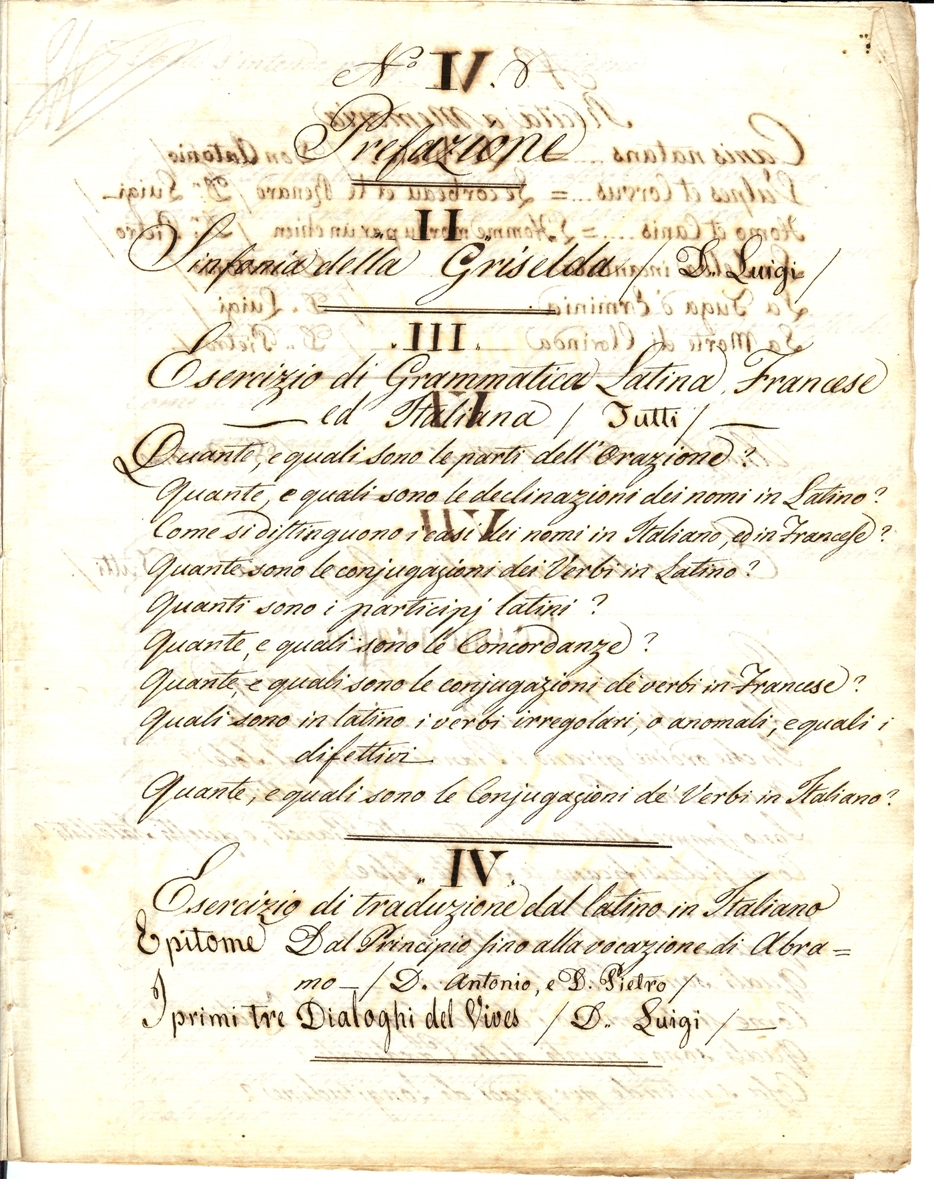 N.º I.
Prefazione
II
Sinfonia della Griselda / D. Luigi /
III
Esercizio di Grammatica Latina, Francese
ed Italiana / Tutti /
Quante, e quali sono le parti dell'Orazione?
Quante, e quali sono le declinazioni dei nomi in Latino?
Come si distinguono i casi dei nomi in Italiano, ed in Francese?
Quante sono le conjugazioni dei Verbi in Latino?
Quanti sono i participj latini?
Quante, e quali sono le Concordanze?
Quante, e quali sono le conjugazioni de' verbi in Francese?
Quali sono in latino i verbi irregolari, o anomali, e quali i
difettivi
Quante, e quali sono le Conjugazioni de' Verbi in Italiano?
IV
Esercizio di traduzione dal latino in Italiano
Epitome Dal Principio fino alla vocazione di Abra=
mo — / D. Antonio, e D. Pietro /
I primi tre Dialoghi del Vives / D. Luigi / —